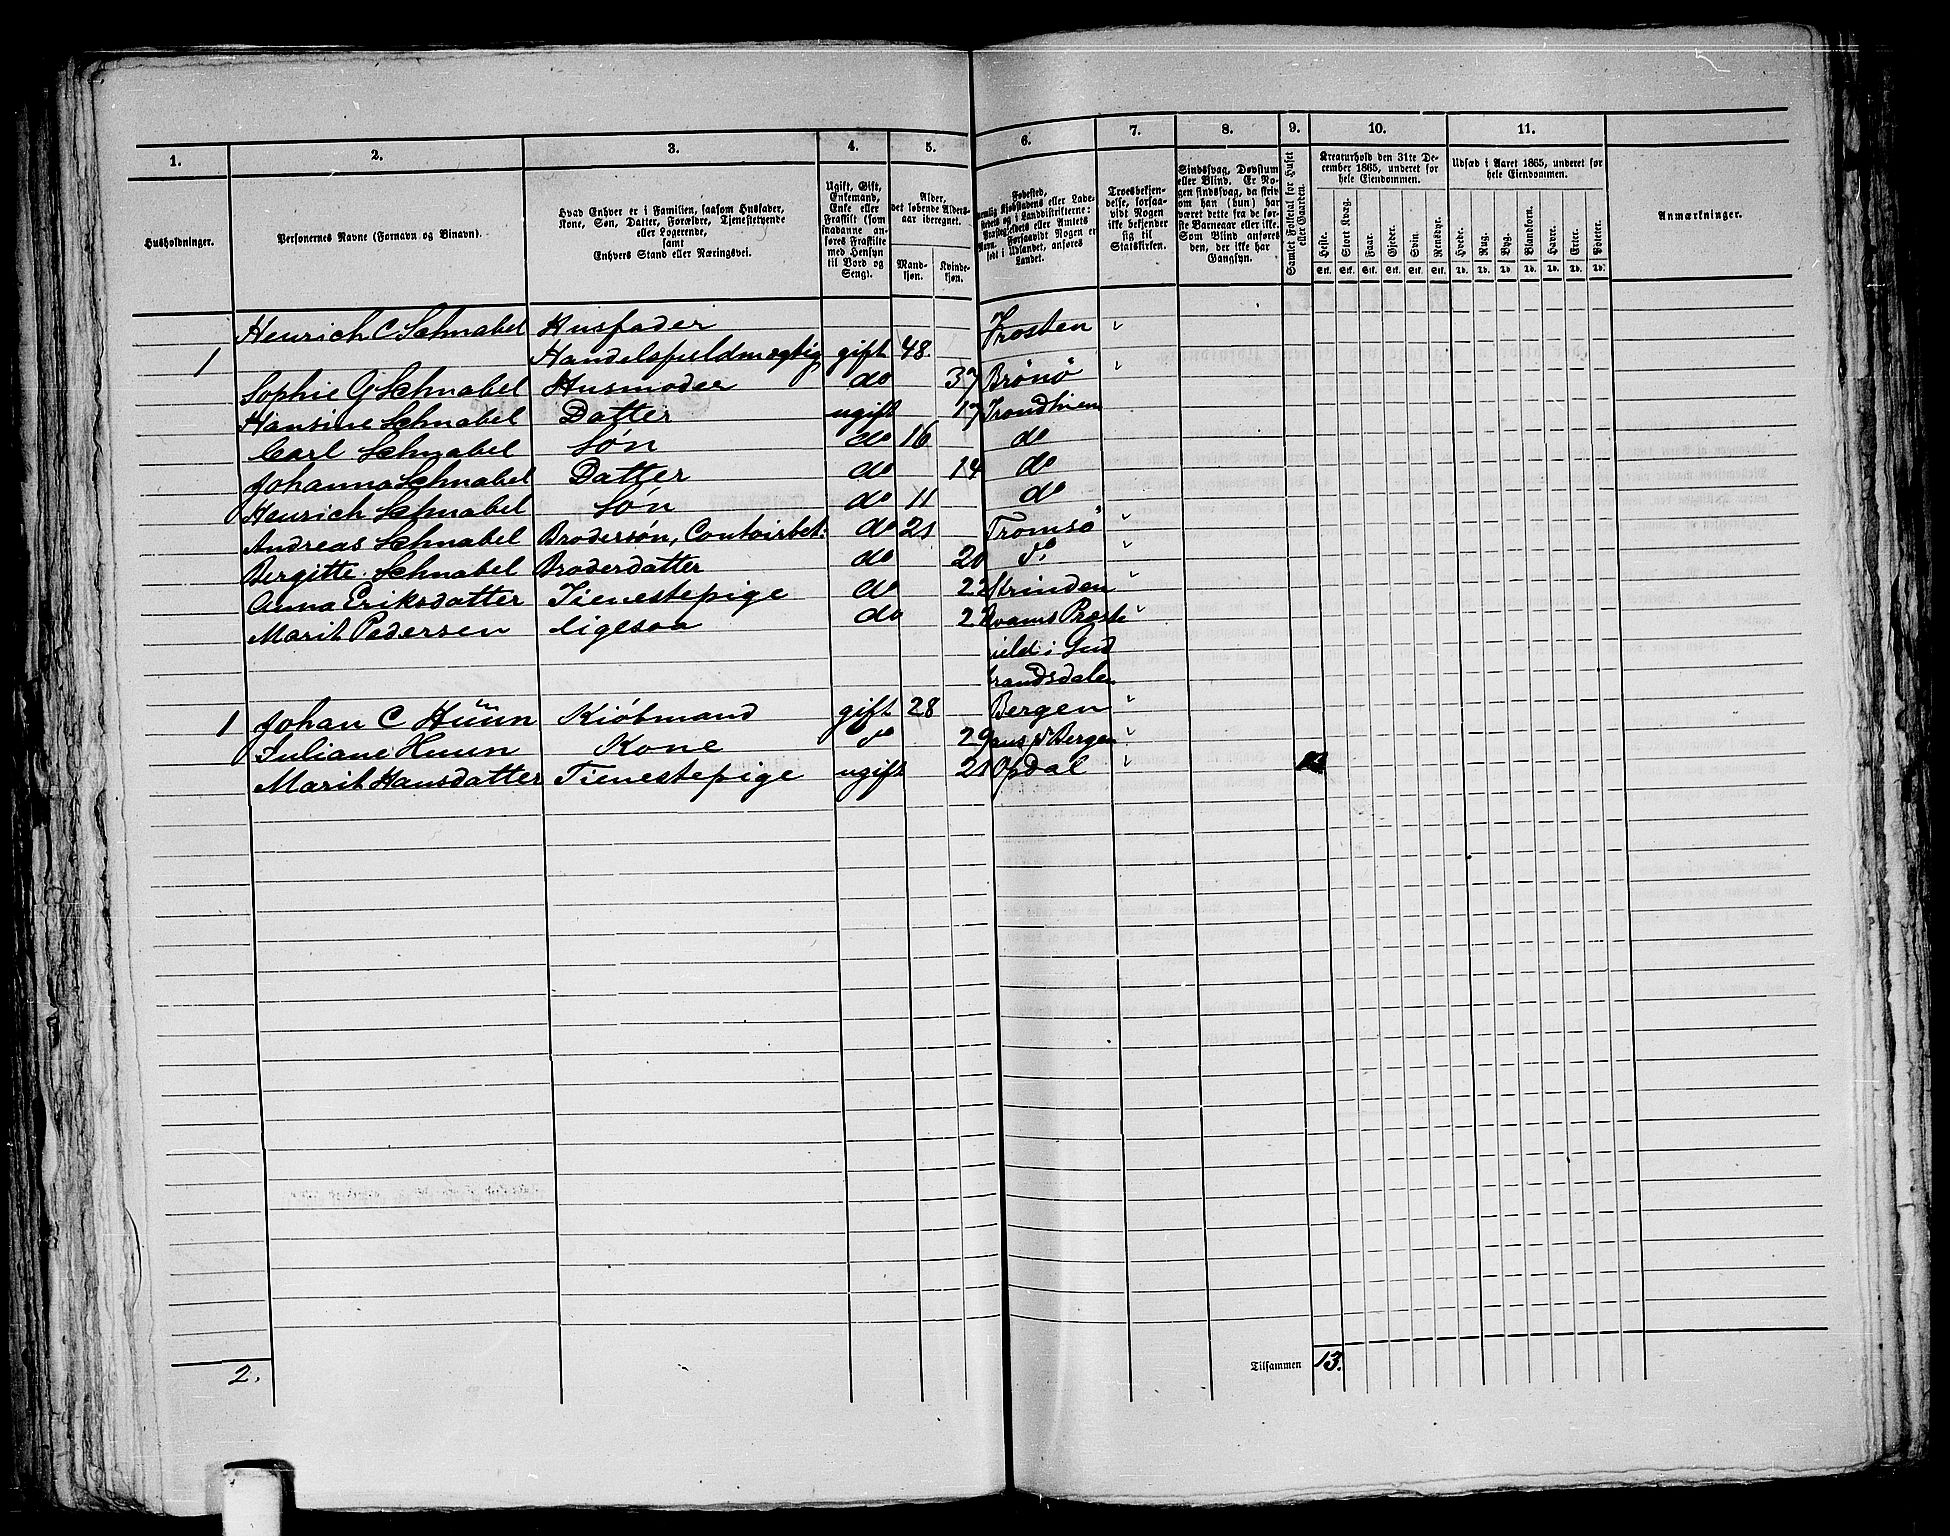 1. 2. 3. 4. 5. 6. 7. 8. 9. 10. 11.
Husholdninger.
Personernes Navne (Fornavn og Binavn).
Hvad Enhver er i Familien, saasom Husfader,
Kone, Søn, Datter, Forældre, Tjenestetyende
eller Logerende,
samt
Enhvers Stand eller Næringsvei.
Ugift, Gift,
Enkemand,
Enke eller
Fraskilt (som
saadanne an-
føres Fraskilte
med Hensyn
til Bord og
Seng).
Alder,
det løbende Alders-
aar iberegnet.
Mand-
kjøn.
Kvinde-
kjøn.
Fødested,
Landet.
Troesbekjen-
delse, forsaa-
vidt Nogen
ikke bekjender
sig til
Statskirken.
Sindssvag, Døvstum
eller Blind. Er No-
gen sindssvag, da skriv
om han (hun) har
været dette fra de før-
ste Barneaar eller ikke.
Som Blind anføres
den, der ikke har
Gangsyn.
Samlet Folketal for Huset
eller Gaarden.
Kreaturhold den 31te De-
cember 1865, underet før
hele Eiendommen.
Heste. Stort Kvæg. Faar. Gjeder. Svin. Rensdyr.
Stk. Stk. Stk. Stk. Stk. Stk.
Udsæd i Aaret 1865, underet før
hele Eiendommen.
Hvede. Rug. Byg. Blandkorn. Havre. Erter. Poteter.
Td. Td. Td. Td. Td. Td. Td.
Anmærkninger.
Henrich C Schnabel Husfader Frosten "
1 Handelsfuldmægtig gift 48.
Sophie G Schnabel Husmoder do 37 Brønø "
Hansine Schnabel Datter ugift 17 Trondhiem
Carl Schnabel Søn do 16 do
Johanna Schnabel Datter do 14 do
Henrich Schnabel Søn do 11 do
Andreas Schnabel Brodersøn, Contoirbet: do 21 Tromsø "
Bergitte Schnabel Broderdatter do 20 do "
Anna Eriksdatter Tienestepige do 22 Strinden "
Marit Pedersen ligesaa do Qvams Præste "
gield i Gud
brandsdalen
1 Johan C Hüün Kiöbmand gift 28 Bergen "
Juliane Huun Kone do 29 Bergen "
Marit Hansdatter Tienestepige ugift 21 Opdal "
2.
Tilsammen 13.